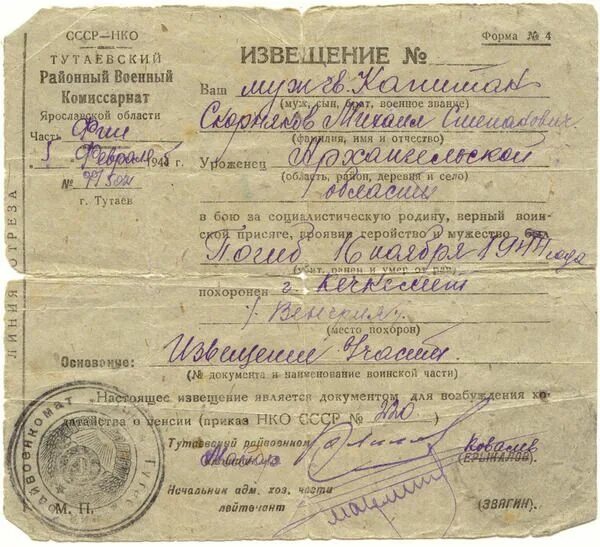 СССР—НКО
ТУТАЕВСКИЙ
Районный Военный
Комиссариат
Ярославской области
Часть Фин
5 Февраля 1945 г.
№
г. Тутаев
ЛИНИЯ ОТРЕЗА
Форма № 4
ИЗВЕЩЕНИЕ №
Ваш муж гв. Капитан
(муж, сын, брат, военное звание)
Скорняков Михаил Степанович
(фамилия, имя и отчество)
Уроженец Архангельской
(область, район, деревня и село)
области
в бою за социалистическую родину, верный воин-
ской присяге, проявив геройство и мужество был
Погиб 16 ноября 1944 года
(убит, ранен и умер от ран)
похоронен г. Кечкемет
Венгрия
(место похорон)
Основание: Извещение Части.
(№ документа и наименование воинской части)
Настоящее извещение является документом для возбуждения хо-
датайства о пенсии (приказ НКО СССР № 220)
Тутаевский райвоенком
Майор
Ковалев
(ЕРЫКАЛОВ)
Начальник адм. хоз. части
лейтенант
(ЗВЯГИН).
М. П.